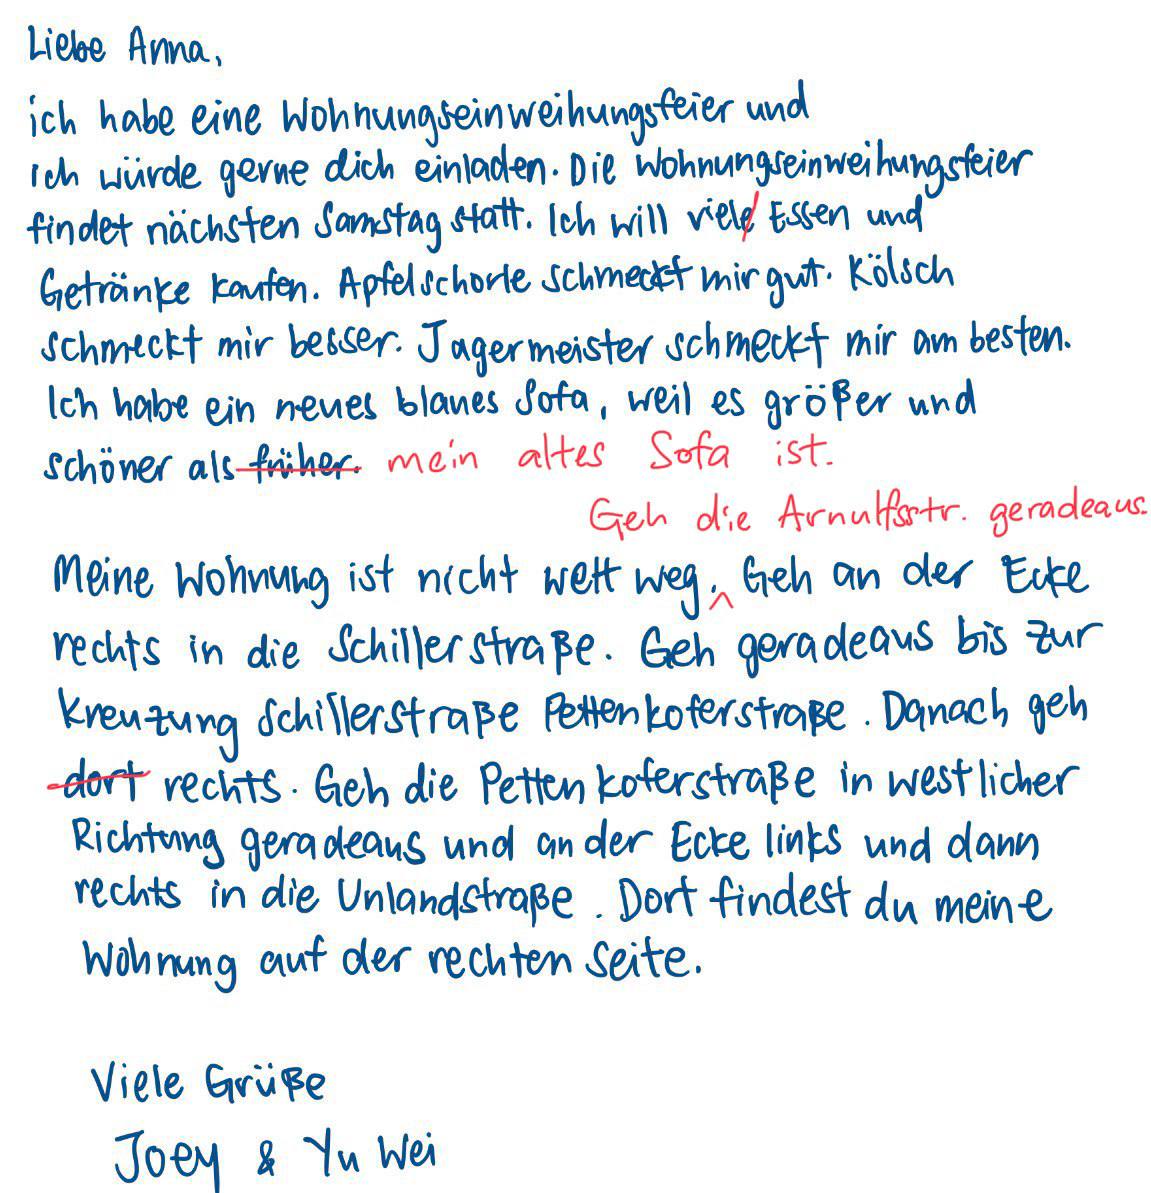 Liebe Anna,
ich habe eine Wohnungseinweihungsfeier und
ich würde gerne dich einladen. Die Wohnungseinweihungsfeier
findet nächsten Samstag statt. Ich will viele Essen und
Getränke kaufen. Apfelschorle schmeckt mir gut. Kölsch
schmeckt mir besser. Jagermeister schmeckt mir am besten.
Ich habe ein neues blaues Sofa, weil es größer und
schöner als früher. mein altes Sofa ist.
Geh die Arnulfsstr. geradeaus.
Meine Wohnung ist nicht weit weg. Geh an der Ecke
rechts in die Schillerstraße. Geh geradeaus bis zur
Kreuzung Schillerstraße Pettenkoferstraße. Danach geh
dort rechts. Geh die Pettenkoferstraße in westlicher
Richtung geradeaus und an der Ecke links und dann
rechts in die Unlandstraße. Dort findest du meine
Wohnung auf der rechten Seite.
Viele Grüße
Joey & Yu Wei